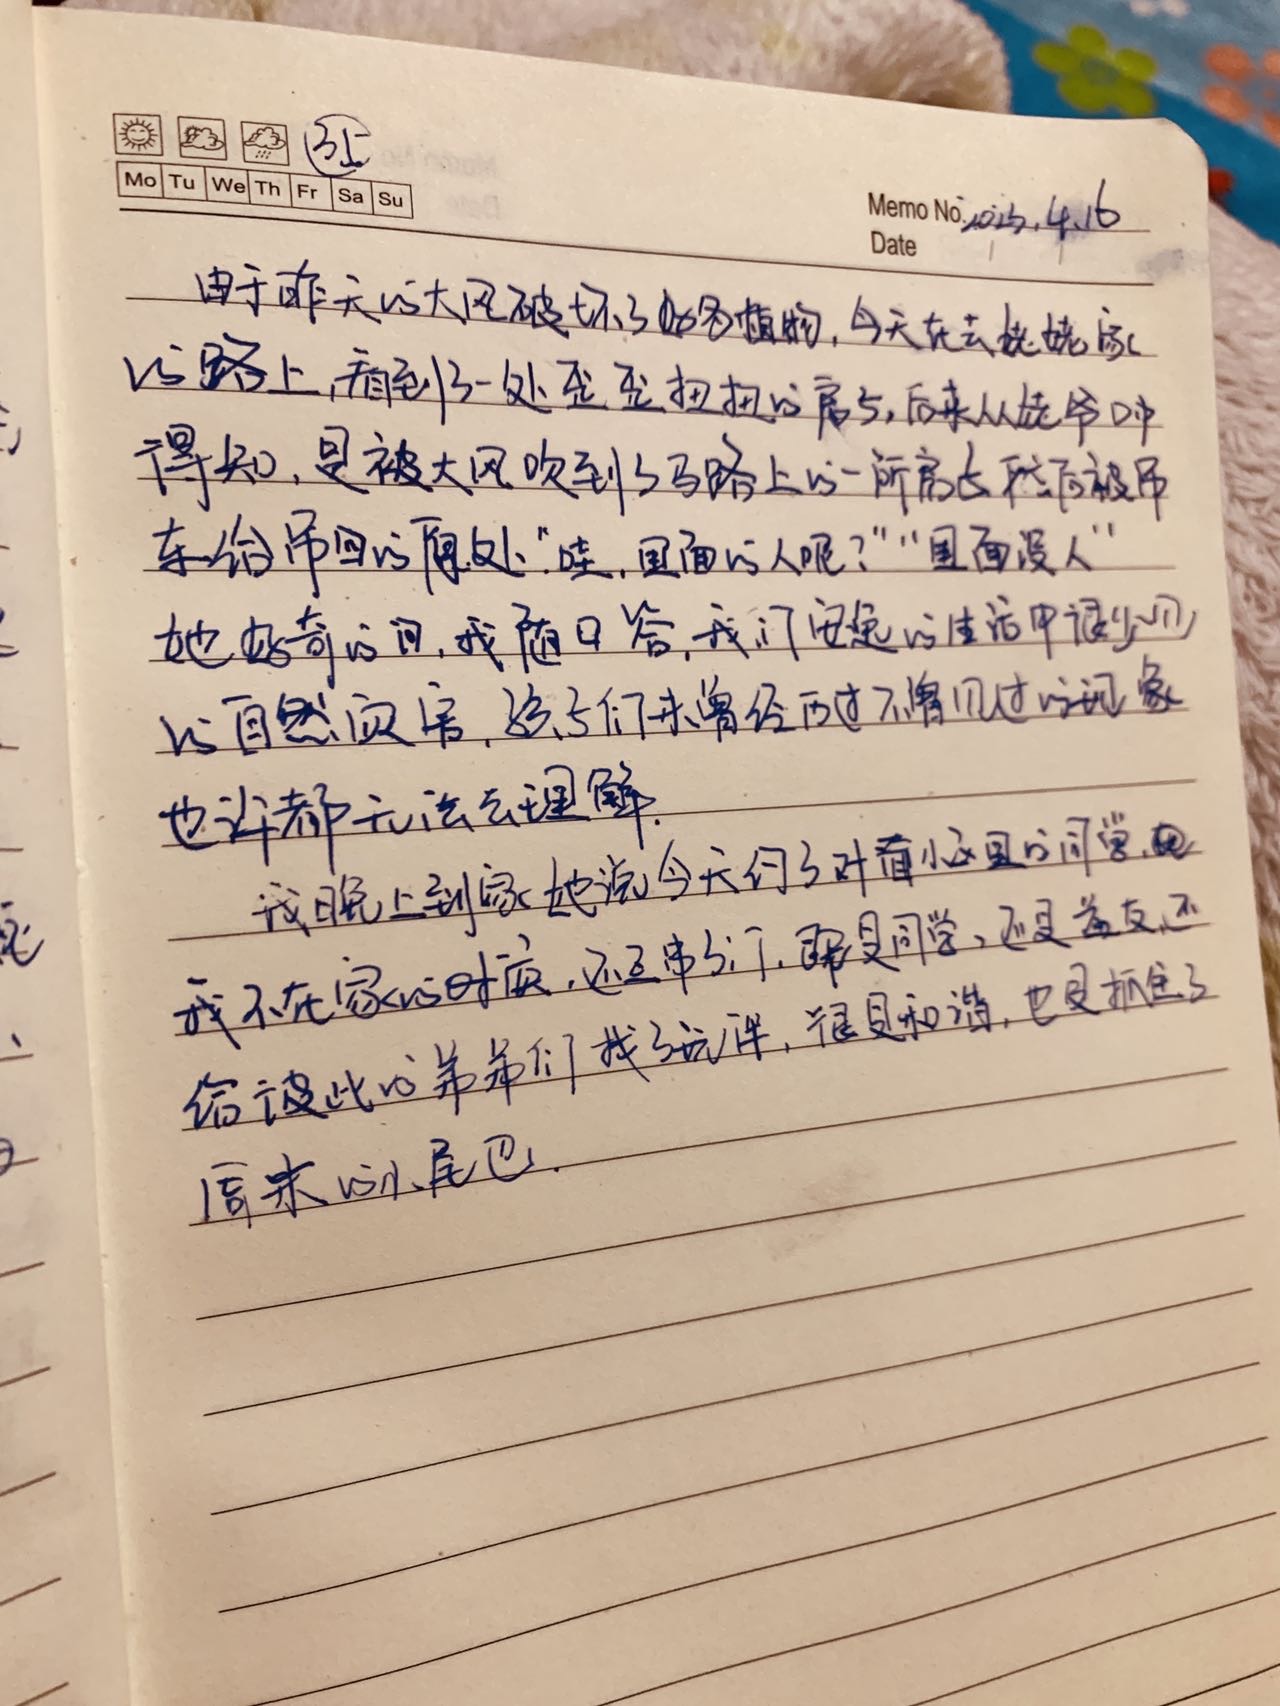 35
Mo Tu We Th Fr Sa Su
Memo No. 2025.4.16
Date
由于昨天的大风破坏了好多植物,今天在去姥姥家
的路上,看到了一处歪歪扭扭的房子,后来从姥爷口中
得知,是被大风吹到了马路上的一所房子然后被吊
车给吊回的原处"哇,里面的人呢?""里面没人"
她好奇的问,我随口答,我们安逸的生活中很少见
的自然灾害,孩子们未曾经历过不曾见过的现象
也许都无法去理解.
我晚上到家她说今天约了对着小区的同学,
我不在家的时候,还互串了门.既是同学、还是益友,还
给彼此的弟弟们找了玩伴,很是和谐,也是抓住了
后来的小尾巴.